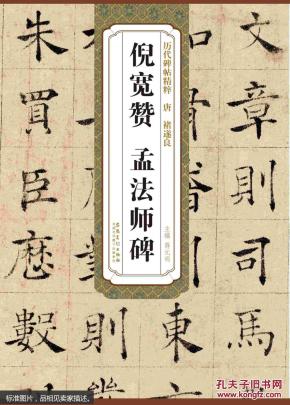 历代碑帖精粹 唐 褚遂良
倪宽赞 孟法师碑
主编 蒋元明
文章則司馬
則東方
朱買臣歷數
孔夫子旧书网
www.kongfz.com
样本图片，品相见卖家描述。